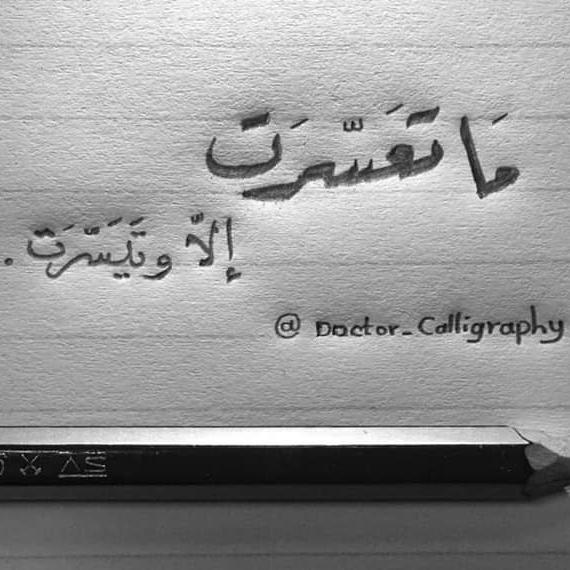 مَا تَعَسَّرَت
إلاّ وتَيَسَّرَت .
@ Doctor_Calligraphy